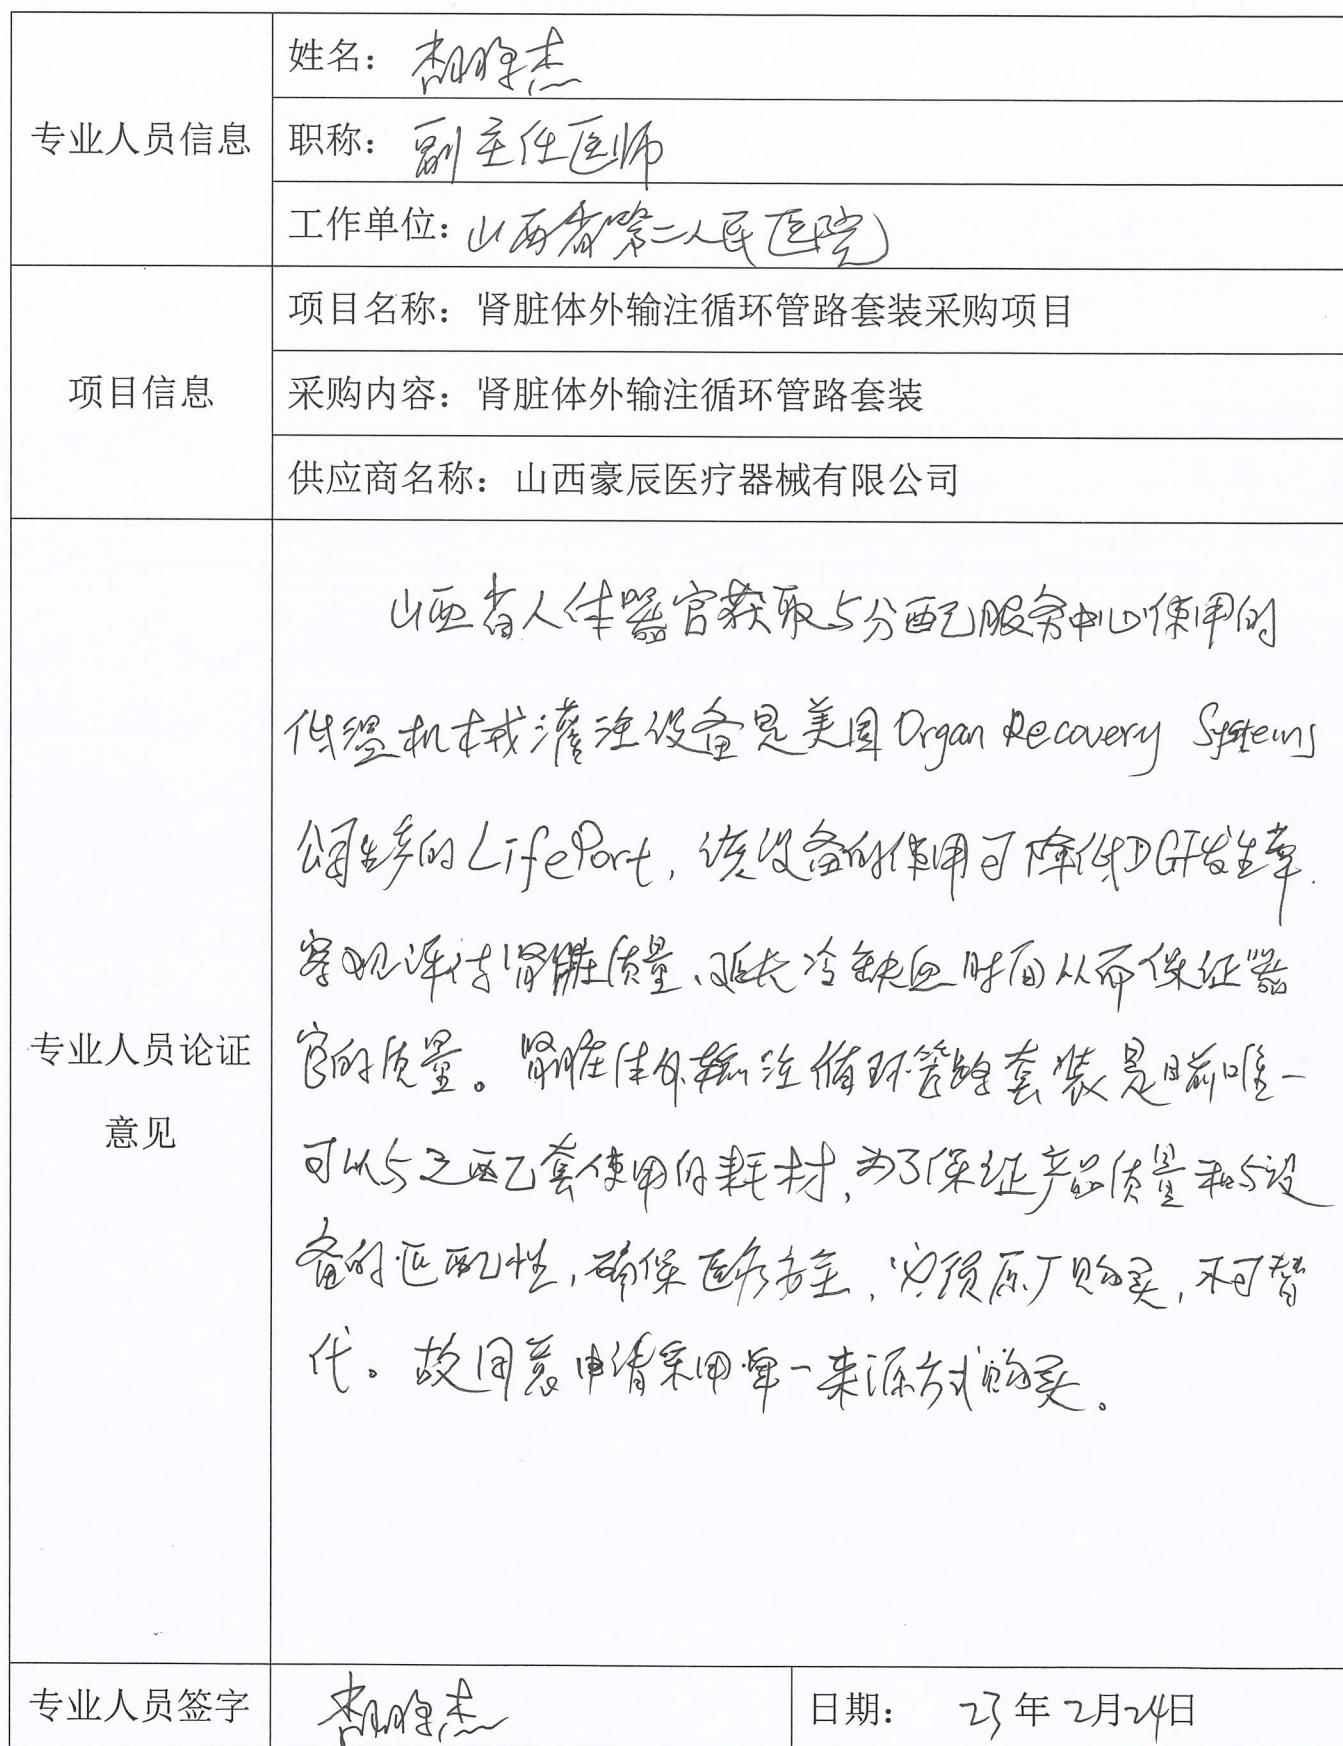 专业人员信息
姓名：
职称：副主任医师
工作单位：山西省第二人民医院
项目信息
项目名称：肾脏体外输注循环管路套装采购项目
采购内容：肾脏体外输注循环管路套装
供应商名称：山西豪辰医疗器械有限公司
专业人员论证
意见
山西省人体器官获取与分配服务中心使用的
低温机械灌注设备是美国Organ Recovery Systems
公司生产的LifePort，该设备的使用可降低DGF发生率、
客观评估肾脏质量、延长冷缺血时间从而保证器
官的质量。肾脏体外输注循环管路套装是目前唯一
可以与之配套使用的耗材，为了保证产品质量和与设
备的匹配性，确保医疗安全，必须原厂购买，不可替
代。故同意申请采用单一来源方式购买。
专业人员签字
日期：23年2月24日